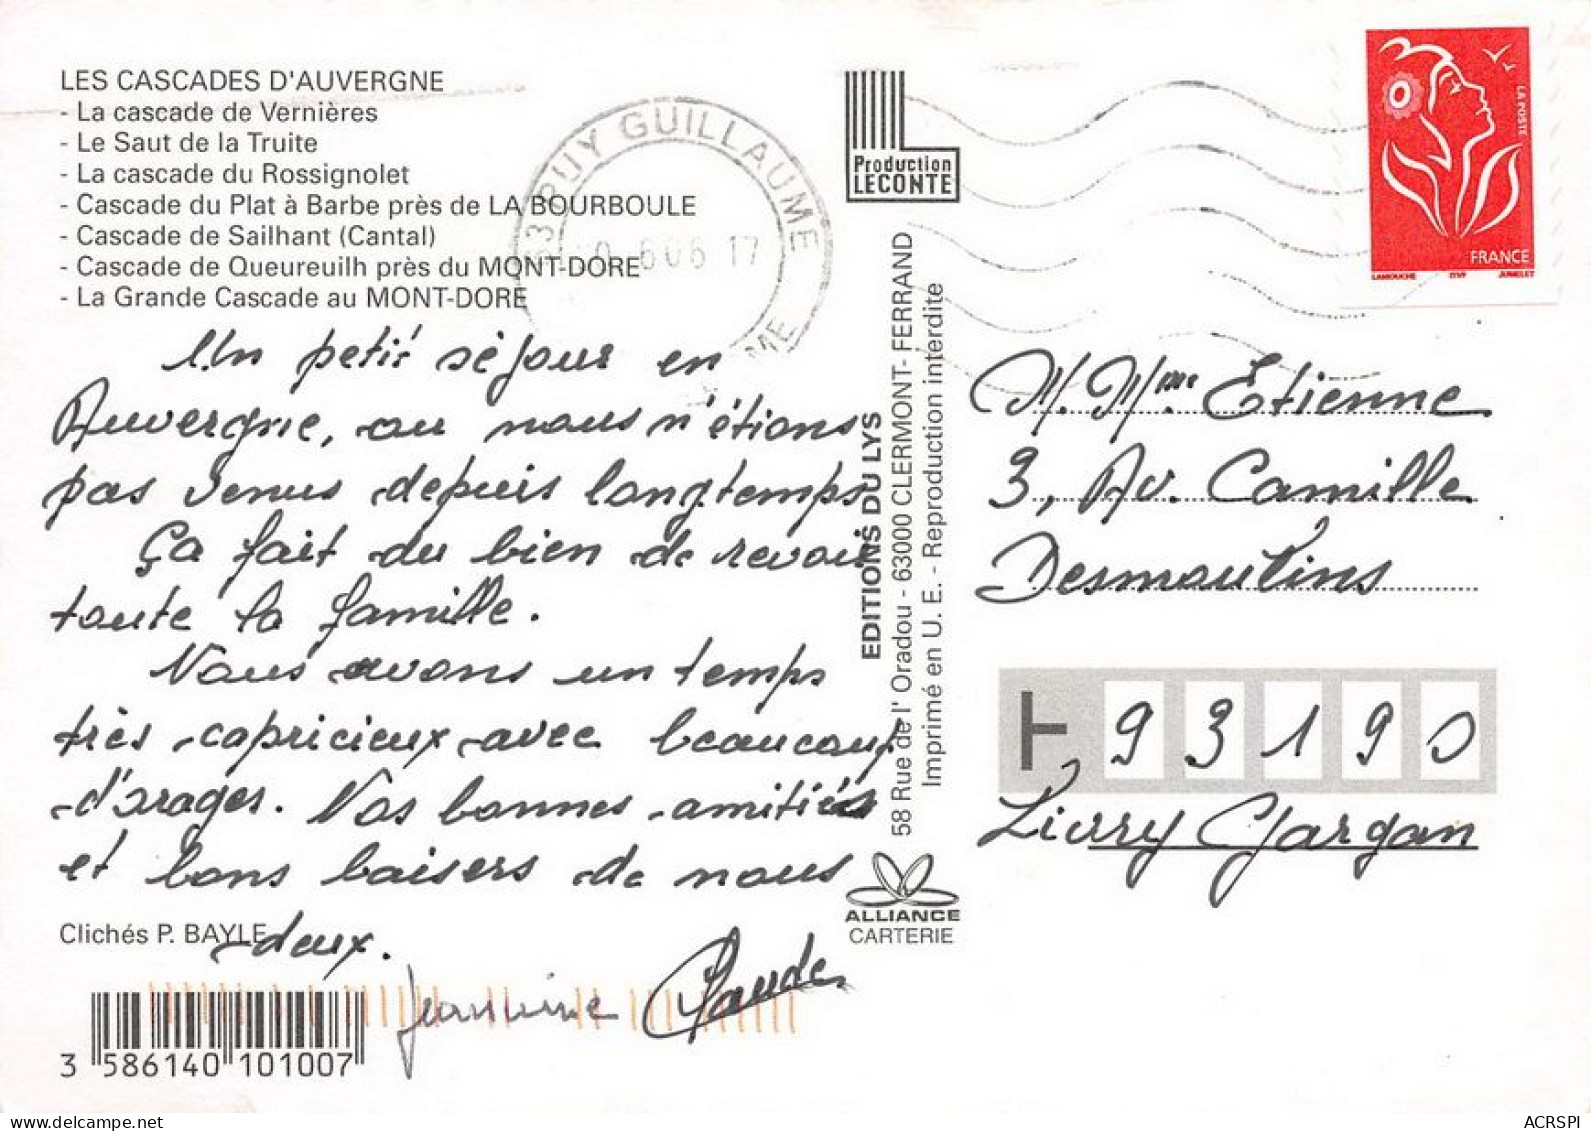 LES CASCADES D'AUVERGNE
- La cascade de Vernières
- Le Saut de la Truite
- La cascade du Rossignolet
- Cascade du Plat à Barbe près de LA BOURBOULE
- Cascade de Sailhant (Cantal)
- Cascade de Queureuilh près du MONT-DORE
- La Grande Cascade au MONT-DORE
63 PUY GUILLAUME
606 17
Un petit séjour en
Auvergne, ou nous n'étions
pas venus depuis longtemps
Ça fait du bien de revoir
toute la famille.
Nous avons un temps
très capricieux avec beaucoup
d'orages. Nos bonnes amitiés
et bons baisers de nous
deux.
Claude
Clichés P. BAYLE
3 586140 101007
Production
LECONTE
EDITIONS DU LYS
58 Rue de l' Oradou - 63000 CLERMONT- FERRAND
Imprimé en U. E. - Reproduction interdite
ALLIANCE
CARTERIE
LA POSTE
FRANCE
LAMOUCHE ITVF JUMELET
M. Mme Etienne
3, Av. Camille
Desmoulins
93190
Livry Gargan
www.delcampe.net
ACRSPI